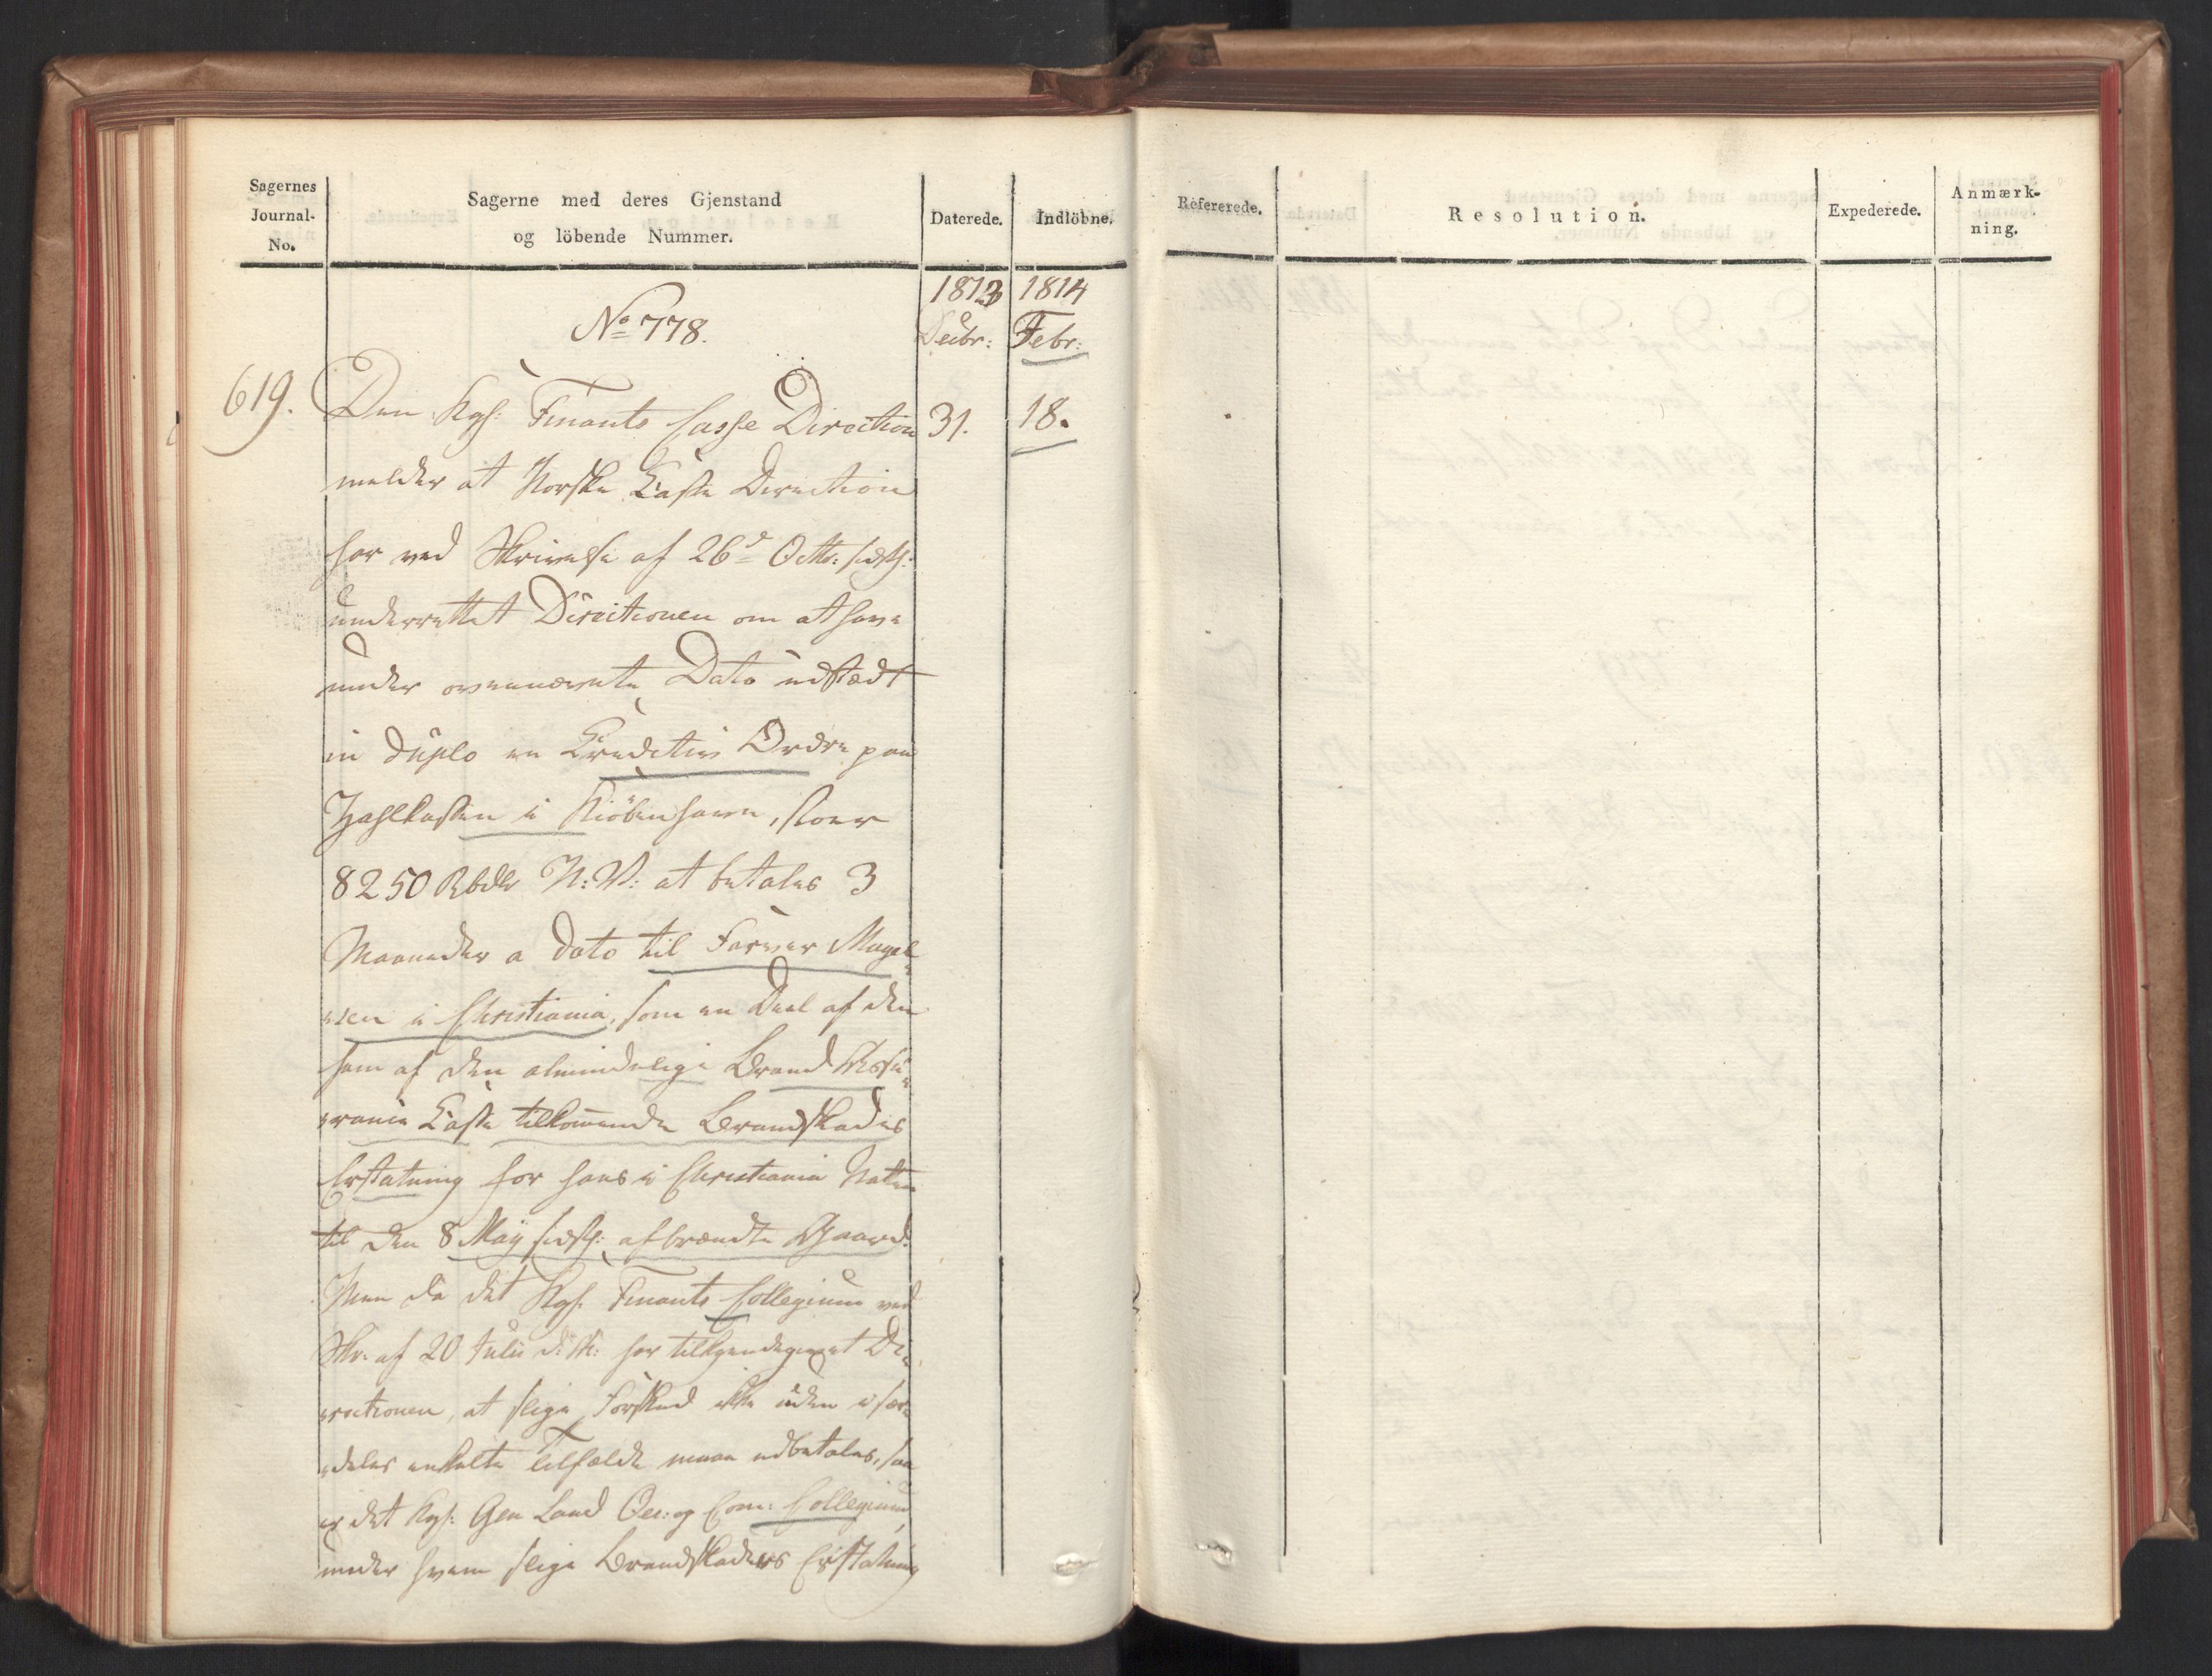 Sagernes
Journal-
No.
Sagerne med deres Gjenstand
og löbende Nummer.
Daterede.
Indlöbne.
1813
1814
No 778.
Decbr:
Febr:
619.
Den Kgl: Finants Casse Direction
31.
18.
melder at Norske Casse Direction
har ved Skrivelse af 26d Octbr: sidstl:
underrettet Directionen om at have
under ovennævnte Dato udstædt
in duplo en Creditiv Ordre paa
Zahlkassen i Kiöbenhavn, stoer
8250 Rbdlr N: V: at betales 3
Maaneder a dato til Farver Magel-
sen i Christiania, som en Deel af den
ham af den almindelige Brand Assu-
rance Casse tilkommende Brandskades
Erstatning for hans i Christiania Natten
til den 8 May sidstl: afbrændte Gaard.
Men da det Kgl. Finants Collegium ved
Skr. af 20 Julii har tilkjendegivet Di-
rectionen, at slige Forskud ikke uden i sær-
deles enkelte Tilfælde maae udbetales, saa
er det Kgl: Gen Land Oec: og Com: Collegium,
under hvem slige Brandskaders Erstatning
Refererede.
Resolution.
Expederede.
Anmærk-
ning.